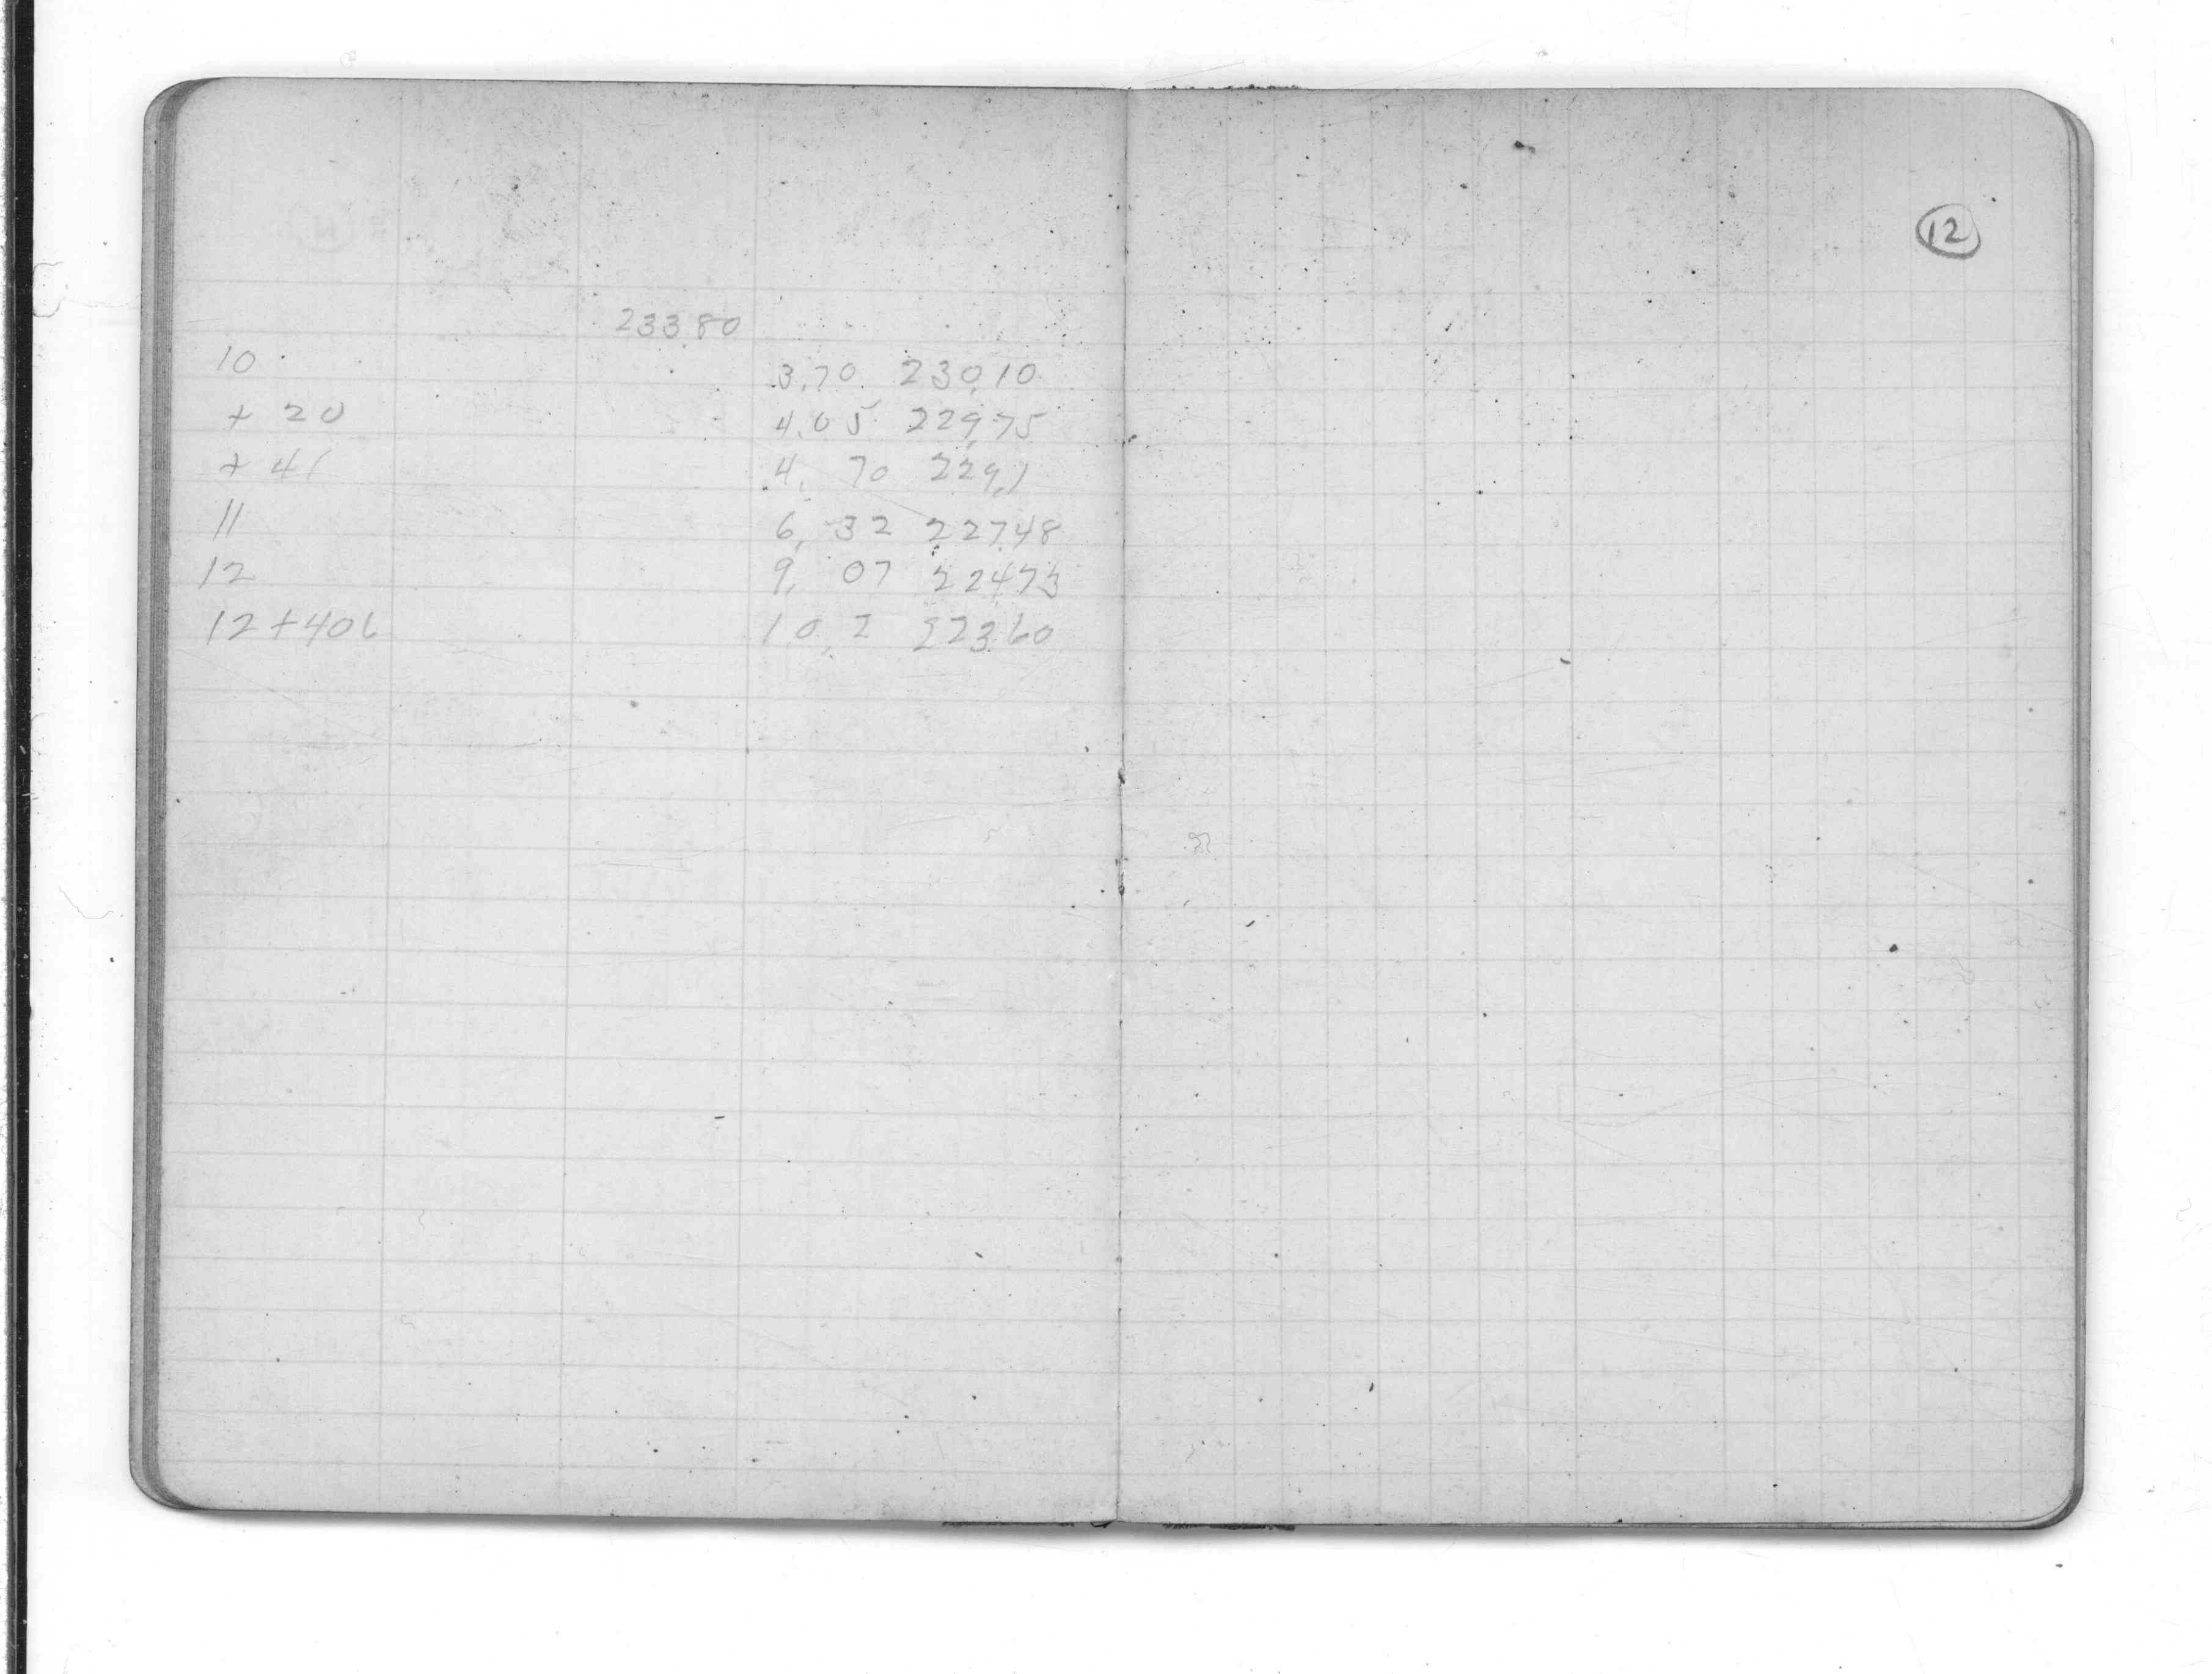 233.80
10 3.70 230.10
+ 20 4.05 229.75
+ 41 4. 70 229.1
11 6. 32 227.48
12 9. 07 224.73
12 + 40 10.2 223.60
12